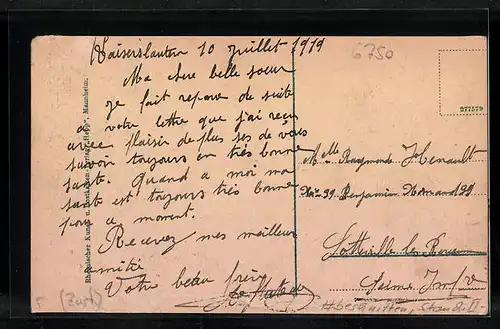 Kaiserslautern 10 Juillet 1919
Ma chere belle soeur
je fait reponse de suite
a votre lettre que j'ai reçu
avec plaisir de plus ses de vous
savoir toujours en très bonne
santé. Quand a moi ma
santé est toujours très bonne
pour a moment.
Recevez mes meilleur
amitié
Votre beau frère
6750
277579
Melle Raymonde Henault
Rue 39 Benjamin Normand 39
Sotteville les Rouen
Seine Inf
Rheinischer Kunst- u. Verlag "Hepp", Mannheim.
beschnitten,